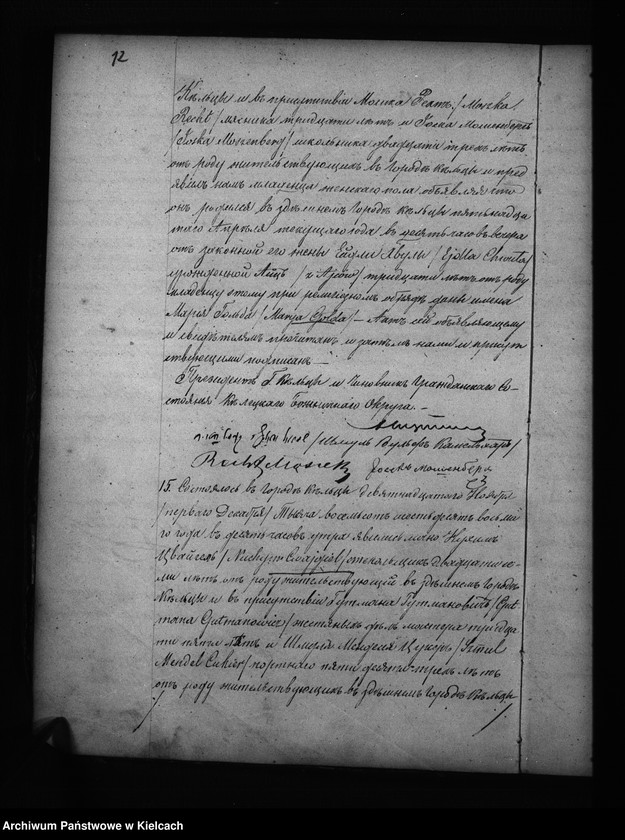 12
Кѣльцы и въ присутствіи Мошка Рехтъ /Moszka
Recht/ мясника тридцати лѣтъ и Іоска Мошенберга
/Joska Moszenberg/ школьника двадцати трехъ лѣтъ
отъ роду жительствующихъ въ городѣ Кѣльцы и пред
явилъ намъ младенца женскаго пола объявляя что
онъ родился въ здѣшнемъ городѣ Кѣльцы пятьнадца
таго Апрѣля текущаго года въ десять часовъ вечера
отъ законной его жены
урожденной /z Ajców/ тридцати лѣтъ отъ роду
младенцу этому при религіозномъ обрядѣ даны имена
Марія Гольда /Marya Golda/ — Актъ сей объявляющему
и свидѣтелямъ прочитанъ и затѣмъ нами и присут
ствующими подписанъ —
Президентъ Г. Кѣльцы и Чиновникъ Гражданскаго Со-
стоянія Кѣлецкаго Божничнаго Округа. —
/Шмуль Вульфъ
Recht Moszek Іосекъ Мошенбергъ
15. Состоялось въ городѣ Кѣльцы девятнадцатаго Ноября
/перваго Декабря/ Тысяча восемьсотъ шестьдесятъ восьма
го года въ десять часовъ утра явился лично Нухимъ
Цвайгель /Nuchym Cwajgiel/ стекольщикъ двадцати се-
ми лѣтъ отъ роду жительствующій въ здѣшнемъ городѣ
Кѣльцы и въ присутствіи Гутмана Гутмановичъ /Gut
mana Gutmanowicz/ жестяныхъ дѣлъ мастера тридца
ти пяти лѣтъ и Шмеля Менделя Цукеръ /Szmel
Mendel Cukier/ портнаго пяти десяти трехъ лѣтъ
отъ роду жительствующихъ въ здѣшнемъ городѣ Кѣльцы
Archiwum Państwowe w Kielcach